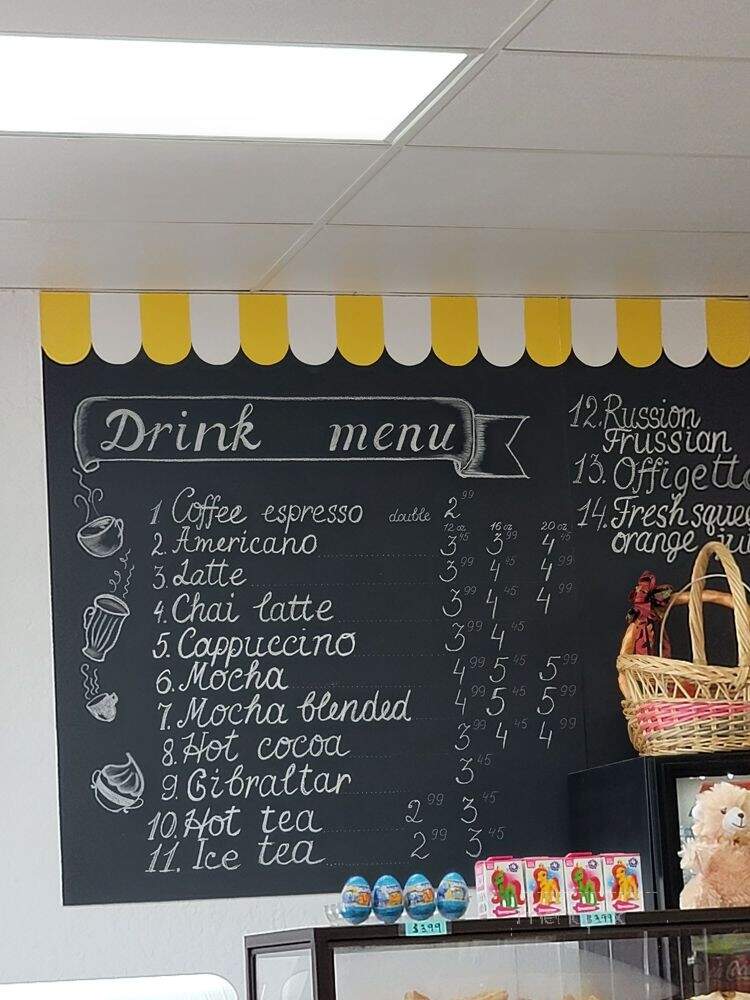 Drink menu
1 Coffee espresso double 2.99
12 oz 16 oz 20 oz
2. Americano 3.45 3.99 4.45
3. Latte 3.99 4.45 4.99
4. Chai latte 3.99 4.45 4.99
5. Cappuccino 3.99 4.45
6. Mocha 4.99 5.45 5.99
7. Mocha blended 4.99 5.45 5.99
8. Hot cocoa 3.99 4.45 4.99
9. Gibraltar 3.45
10. Hot tea 2.99 3.45
11. Ice tea 2.99 3.45
12. Russion
Frussian
13. Offigetto
14. Fresh squee
orange jui
$3.99
$3.99